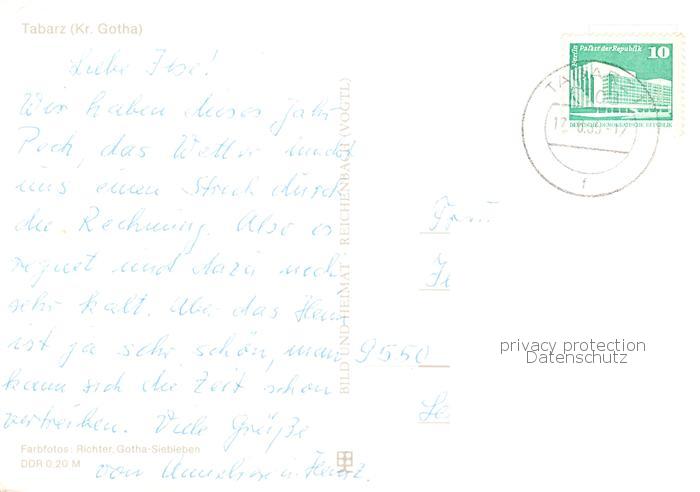 Tabarz (Kr. Gotha)
Liebe Ilse!
Wir haben dieses Jahr
Pech, das Wetter macht
uns einen Strich durch
die Rechnung. Also es
regnet und dazu noch
sehr kalt. Aber das Heim
ist ja sehr schön, man
kann sich die Zeit schon
vertreiben. Viele Grüße
von Anneliese u. Heinz.
Farbfotos: Richter, Gotha-Siebleben
DDR 0,20 M
BILD UND HEIMAT REICHENBACH (VOGTL)
Berlin Palast der Republik
10
DEUTSCHE DEMOKRATISCHE REPUBLIK
Frau
9550
privacy protection
Datenschutz